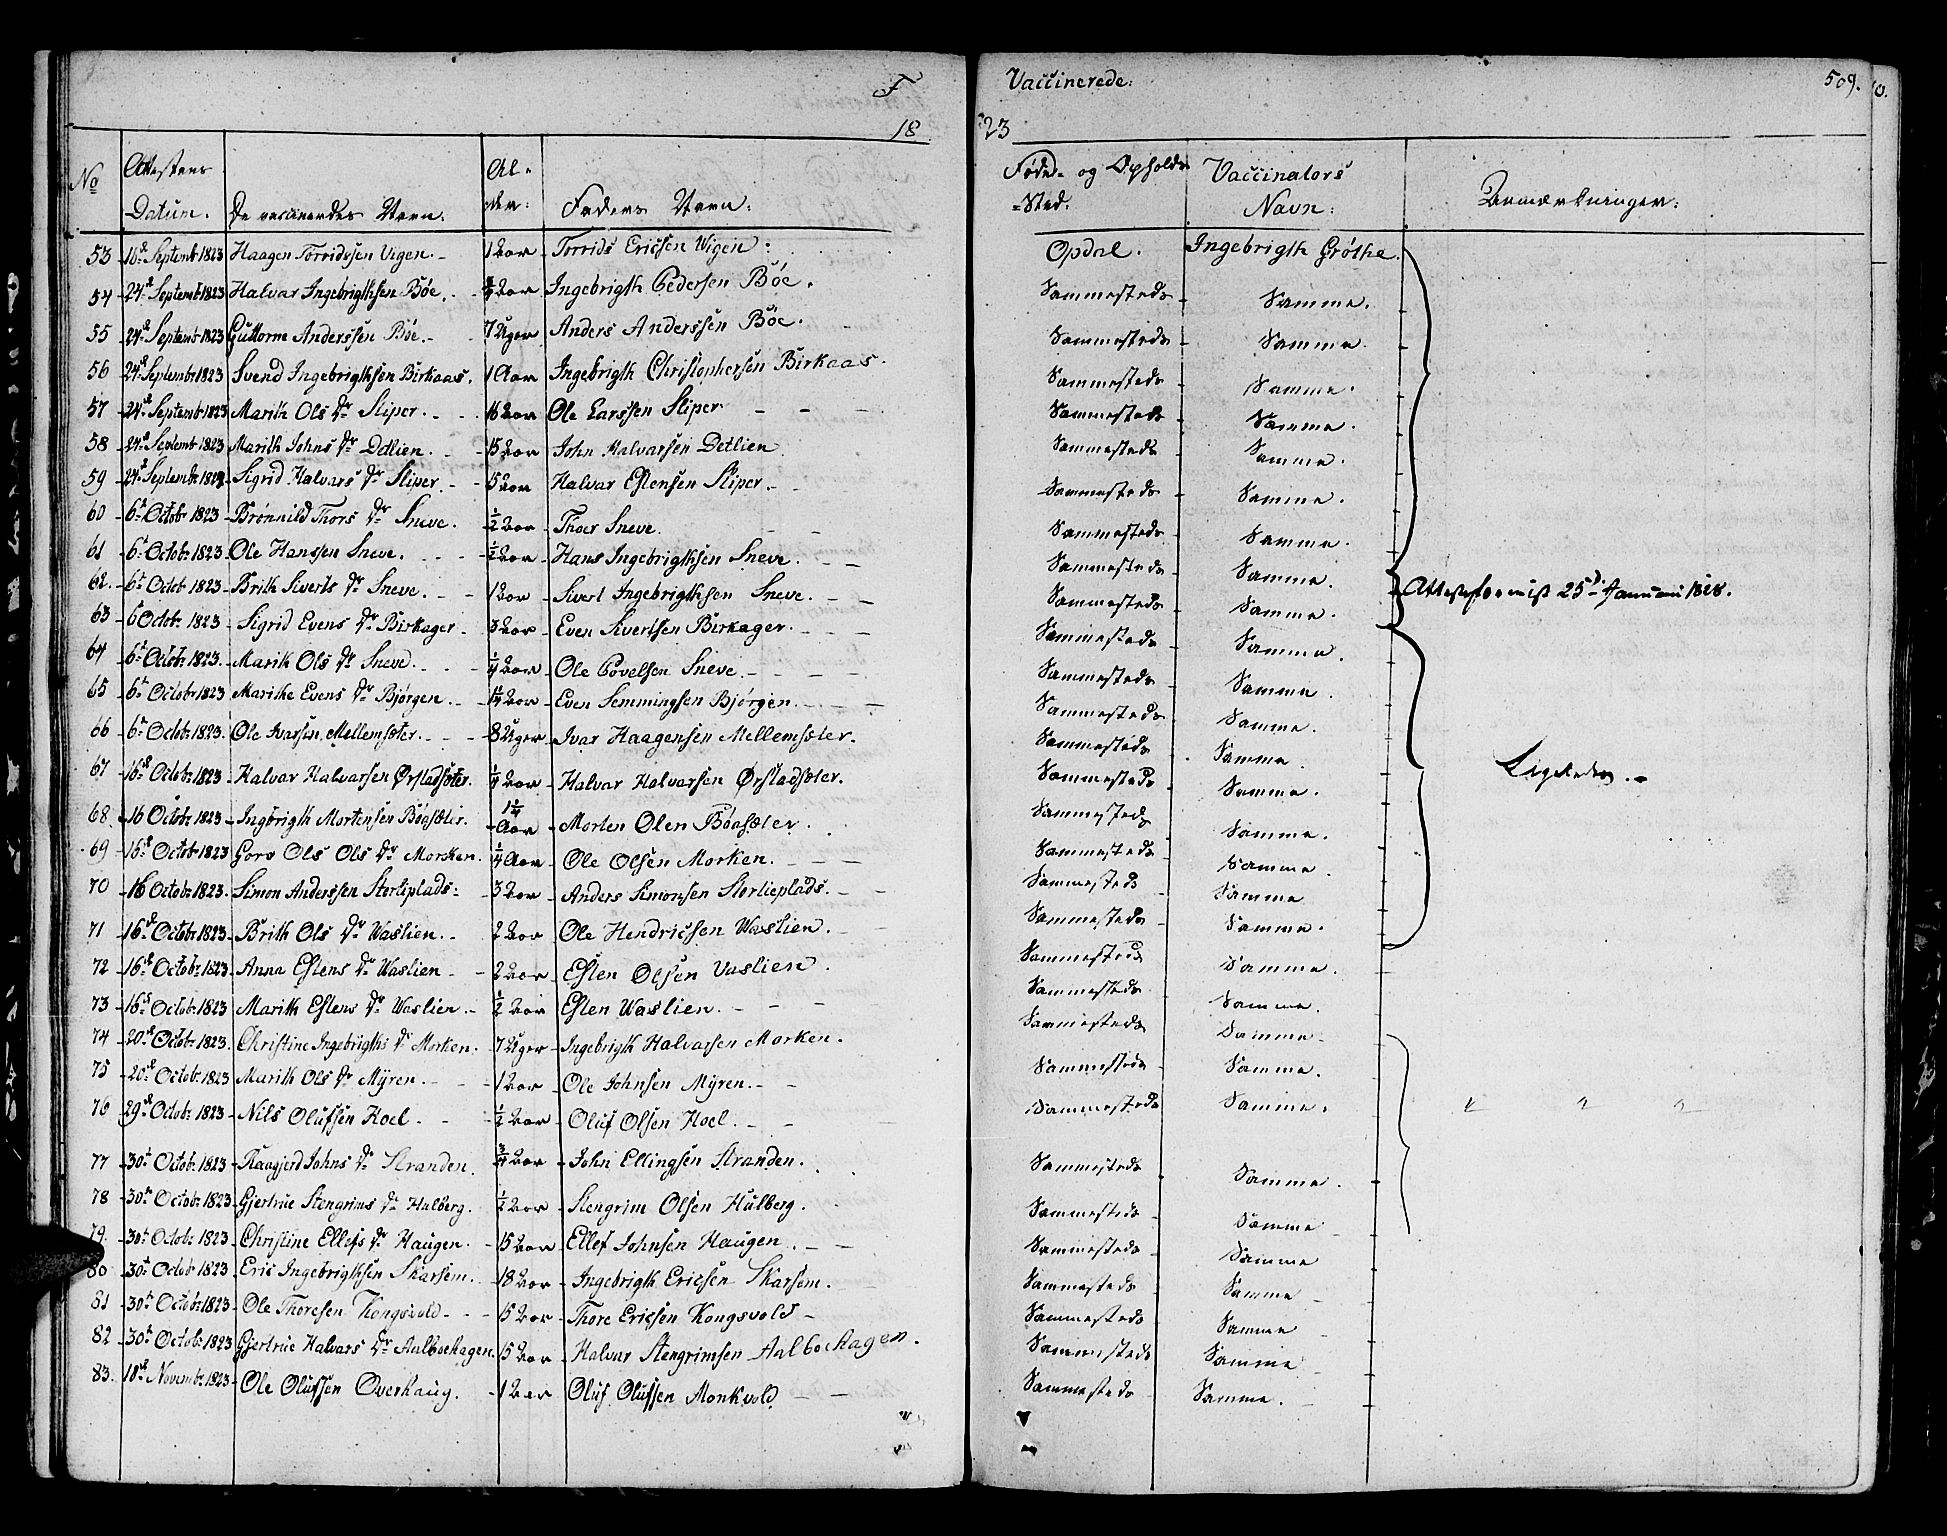 F Vaccinerede. 509.
18 23
No Attestens Datum. De vaccineredes Navn. Alder. Faders Navn. Føde- og Opholds-Sted. Vaccinators Navn. Anmærkninger.
53 10de Septembr 1823 Haagen Torridssen Vigen. 1 Aar Torrids Ericsen Wigen. Opdal. Ingebrigth Grøthe.
54 24de Septembr 1823 Halvar Ingebrigthsen Bøe. Aar Ingebrigth Pedersen Bøe. Sammesteds Samme.
55 24de Septembr 1823 Guttorm Anderssen Bøe. 7 Uger Anders Anderssen Bøe. Sammesteds Samme.
56 24de Septembr 1823 Svend Ingebrigthsen Birkaas. 1 Aar Ingebrigth Christophersen Birkaas. Sammesteds Samme.
57 24de Septembr 1823 Marith Ols Dr Sliper. 16 Aar Ole Larssen Sliper. Sammesteds Samme.
58 24de Septembr 1823 Marith Johns Dr Detlien. 15 Aar John Halvarsen Detlien. Sammesteds Samme.
59 24de Septembr 1823 Sigrid Halvars Dr Sliper. 5 Aar Halvar Estensen Sliper. Sammesteds Samme.
60 6te Octobr 1823 Brønnild Thors Dr Sneve. ½ Aar Thoer Sneve. Sammesteds Samme.
61 6te Octobr 1823 Ole Hanssen Sneve. ½ Aar Hans Ingebrigthsen Sneve. Sammesteds Samme.
62. 6te Octob 1823 Brith Siverts Dr Sneve. 1 Aar Sivert Ingebrigthsen Sneve. Sammesteds Samme. Attesten fremvist 25de Januari 1828.
63 6 Octobr 1823 Sigrid Evens Dr Birkager. 3 Aar Even Sivertsen Birkager. Sammesteds Samme.
64 6te Octobr 1823. Marith Ols Dr Sneve. ¼ Aar Ole Povelsen Sneve. Sammesteds Samme.
65 6te Octobr 1823 Marithe Evens Dr Bjørgen. ¼ Aar Even Semmingsen Bjørgen. Sammesteds Samme.
66 6te Octobr 1823. Ole Ivarsen Mellemsæter. 8 Uger Ivar Haagensen Mellemsæter. Sammesteds Samme.
67 16de Octobr 1823 Halvar Halvarsen Ørstadsæter. ¼ Aar Halvar Halvarsen Ørstadsæter. Sammesteds Samme. Ligeledes.
68 16 Octobr 1823 Ingbrigth Mortensen Bøasæter. 1¼ Aar Morten Olen Bøasæter. Sammesteds Samme.
69 16de Octobr 1823 Goro Ols Ols Dr Morken. ¼ Aar Ole Olsen Morken. Sammesteds Samme.
70 16 Octobr 1823. Simon Anderssen Storliplads. 3 Aar Anders Simonsen Storlieplads. Sammesteds Samme
71 16de Octobr 1823 Brith Ols Dr Waslien. 2 Aar Ole Hendricsen Waslien. Sammesteds Samme.
72 16de Octobr 1823 Anna Estens Dr Waslien 2 Aar Esten Olsen Vaslien. Sammesteds Samme.
73 16de Octobr 1823 Marith Estens Dr Waslien. ½ Aar Esten Waslien. Sammesteds Samme.
74 20de Octobr 1823. Christine Ingebrigths Dr Morken. 7 Uger Ingebrigth Halvarsen Morken. Sammesteds Samme
75 20de Octobr 1823 Marith Ols Dr Myren. 1 Aar Ole Johnsen Myren. Sammesteds Samme.
76 29de Octobr 1823 Nils Olufsen Hoel. ½ Aar Oluf Olsen Hoel. Sammesteds Samme. " " "
77 30te Octobr 1823 Raagjerd Johns Dr Stranden. ¾ Aar John Ellingsen Stranden. Sammesteds Samme.
78 30te Octobr 1823 Gjertrue Stengrims Dr Hulberg. ½ Aar Stengrim Olsen Hulberg. Sammesteds Samme
79. 30te Octobr 1823 Christine Ellefs Dr Haugen. 15 Aar Ellef Johnsen Haugen. Sammesteds Samme
80 30te Octobr 1823 Eric Ingebrigthsen Skarsem. 18 Aar Ingebrigth Ericsen Skarsem. Sammesteds Samme
81 30te Octobr 1823 Ole Thoresen Kongsvold 15 Aar Thore Ericsen Kongsvold Sammesteds Samme
82 30te Octobr 1823 Gjertrue Halvars Dr Aalboehagen. 15 Aar Halvar Stengrimsen Aalboehagen. Sammesteds Samme
83. 10de Novembr 1823 Ole Olufsen Overhaug. 1 Aar Oluf Olufsen Monkvold Sammesteds Samme.